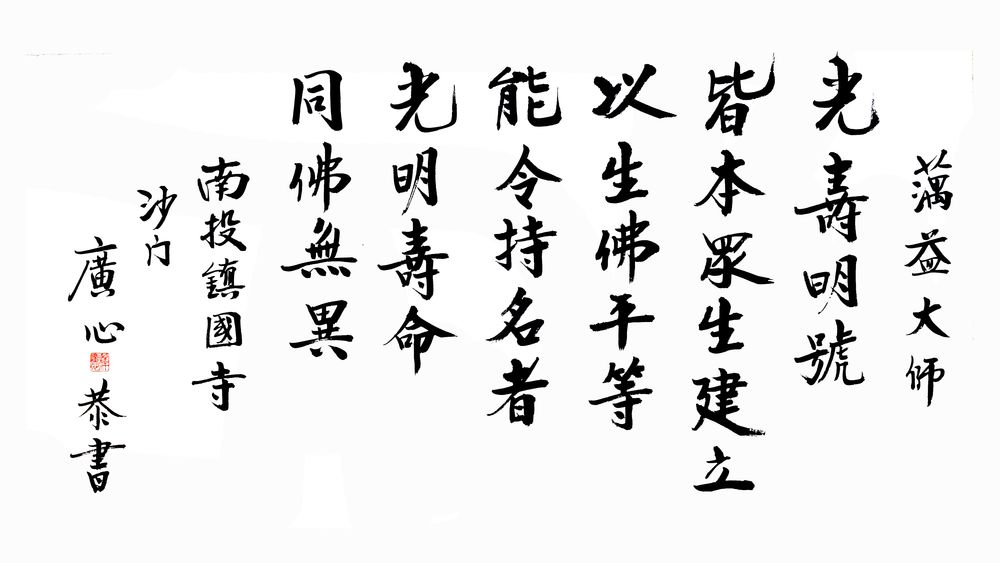 蕅益大師
光壽明號
皆本眾生建立
以生佛平等
能令持名者
光明壽命
同佛無異
南投鎮國寺
沙门
廣心恭書